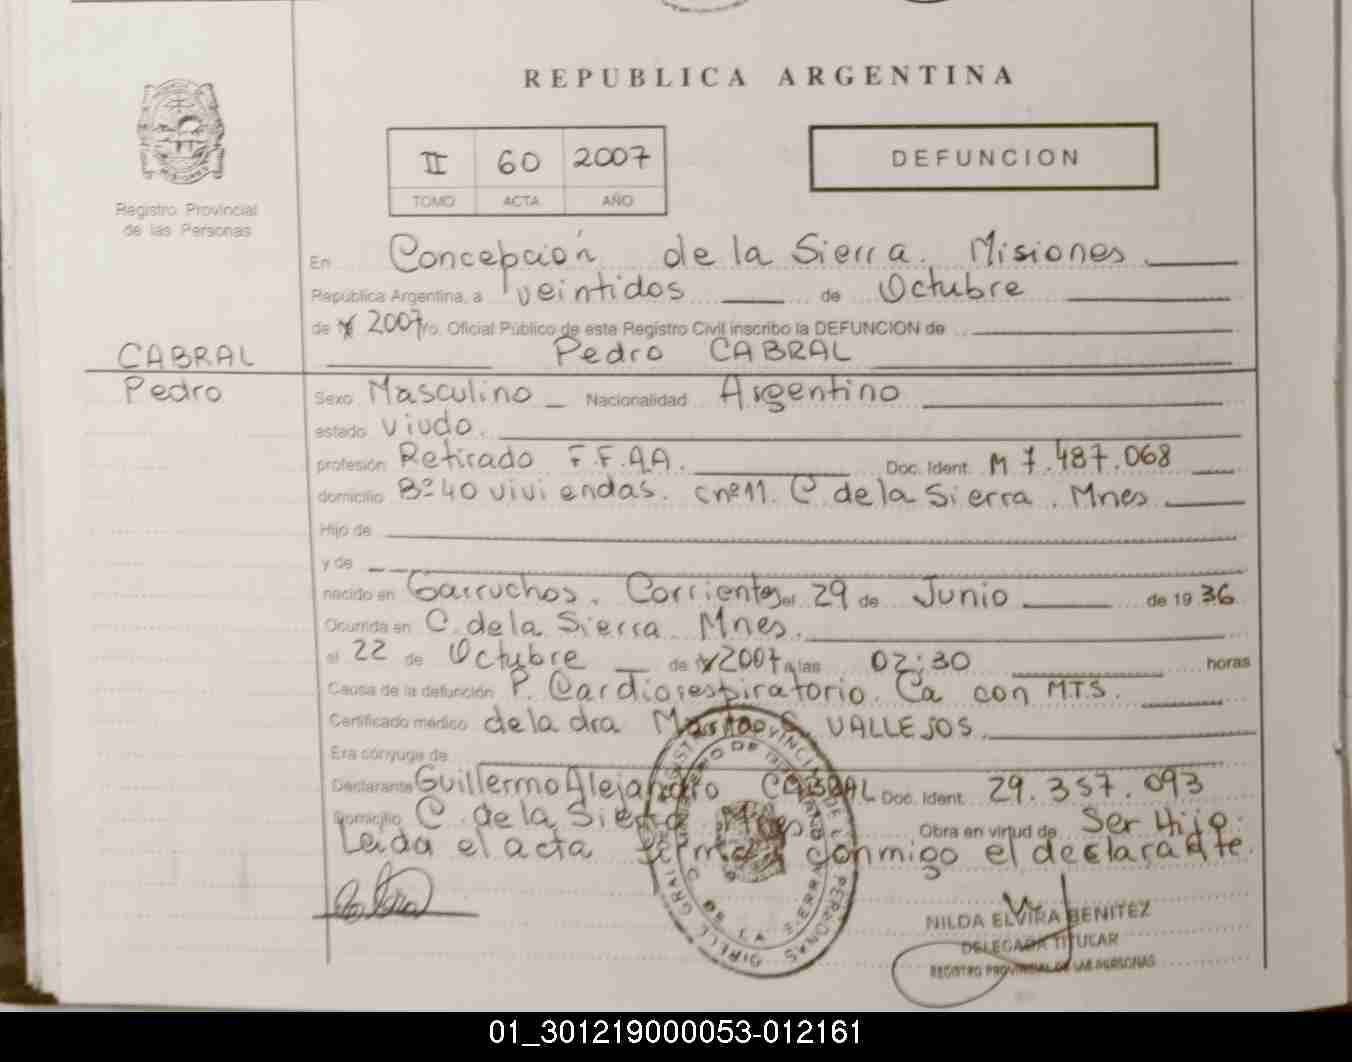 REPUBLICA ARGENTINA
II 60 2007
TOMO ACTA AÑO
DEFUNCION
Registro Provincial
de las Personas
En Concepción de la Sierra. Misiones
República Argentina, a veintidos de Octubre
de 2007 yo. Oficial Público de este Registro Civil inscribo la DEFUNCION de
CABRAL
Pedro
Pedro CABRAL
Sexo Masculino Nacionalidad Argentino
estado viudo.
profesión Retirado F.F.AA. Doc. Ident. M 7.487.068
domicilio Bº 40 viviendas. c nº 11. C. de la Sierra. Mnes
Hijo de
y de
nacido en Garruchos. Corrientes el 29 de Junio de 19 36
Ocurrida en C. de la Sierra Mnes.
el 22 de Octubre de 2007 a las 02:30 horas
Causa de la defunción P. Cardiorespiratorio. Ca con MTS.
Certificado médico de la dra VALLEJOS.
Era cónyuge de
Declarante Guillermo Alejandro CABRAL Doc. Ident. 29.357.093
Domicilio C. de la Sierra Mnes Obra en virtud de Ser Hijo.
Leida el acta firma conmigo el declarante.
NILDA ELVIRA BENITEZ
DELEGADA TITULAR
REGISTRO PROVINCIAL DE LAS PERSONAS
01_301219000053-012161